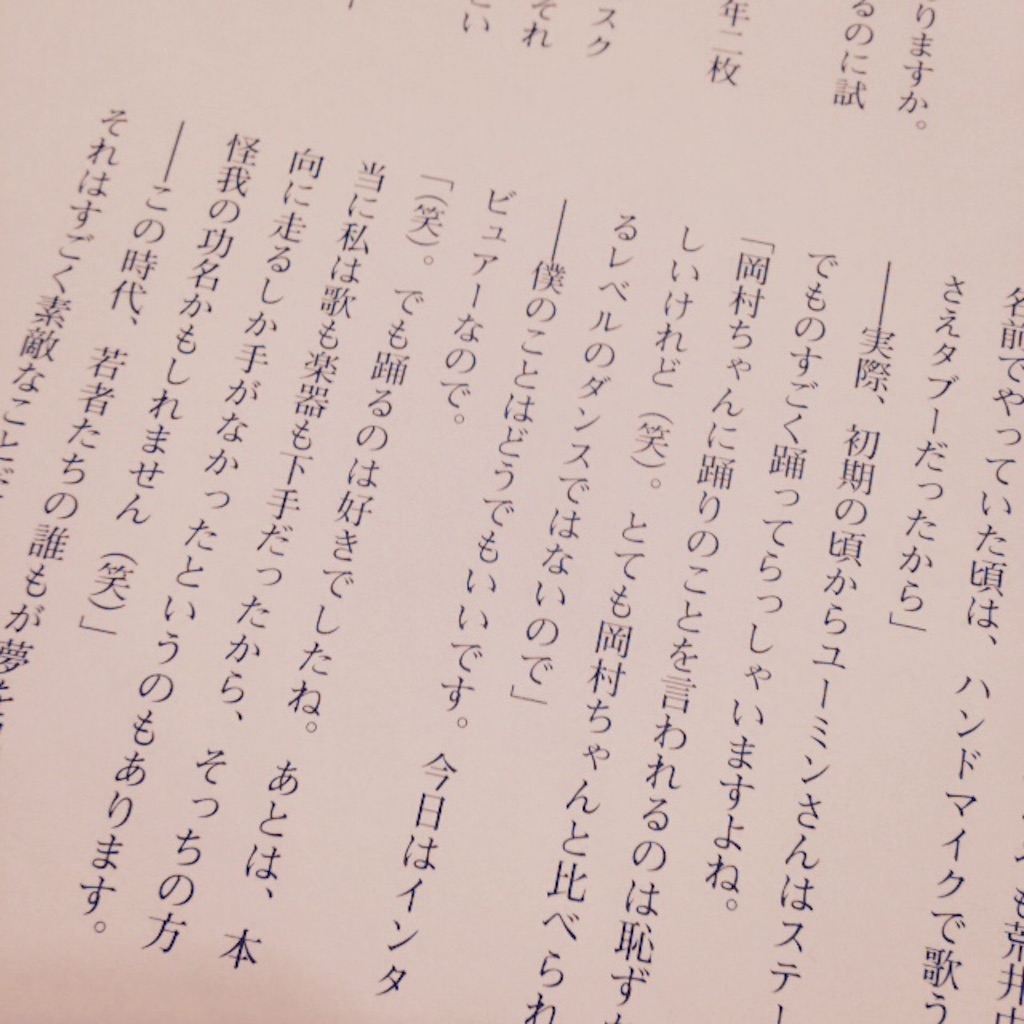 りますか。
るのに試
年二枚
スク
それ
い
も荒井由
名前でやっていた頃は、ハンドマイクで歌う
さえタブーだったから」
――実際、初期の頃からユーミンさんはステー
でものすごく踊ってらっしゃいますよね。
「岡村ちゃんに踊りのことを言われるのは恥ず
しいけれど（笑）。とても岡村ちゃんと比べられ
るレベルのダンスではないので」
――僕のことはどうでもいいです。今日はインタ
ビュアーなので。
「（笑）。でも踊るのは好きでしたね。あとは、本
当に私は歌も楽器も下手だったから、そっちの方
向に走るしか手がなかったというのもあります。
怪我の功名かもしれません（笑）」
――この時代、若者たちの誰もが夢を
それはすごく素敵なことだ